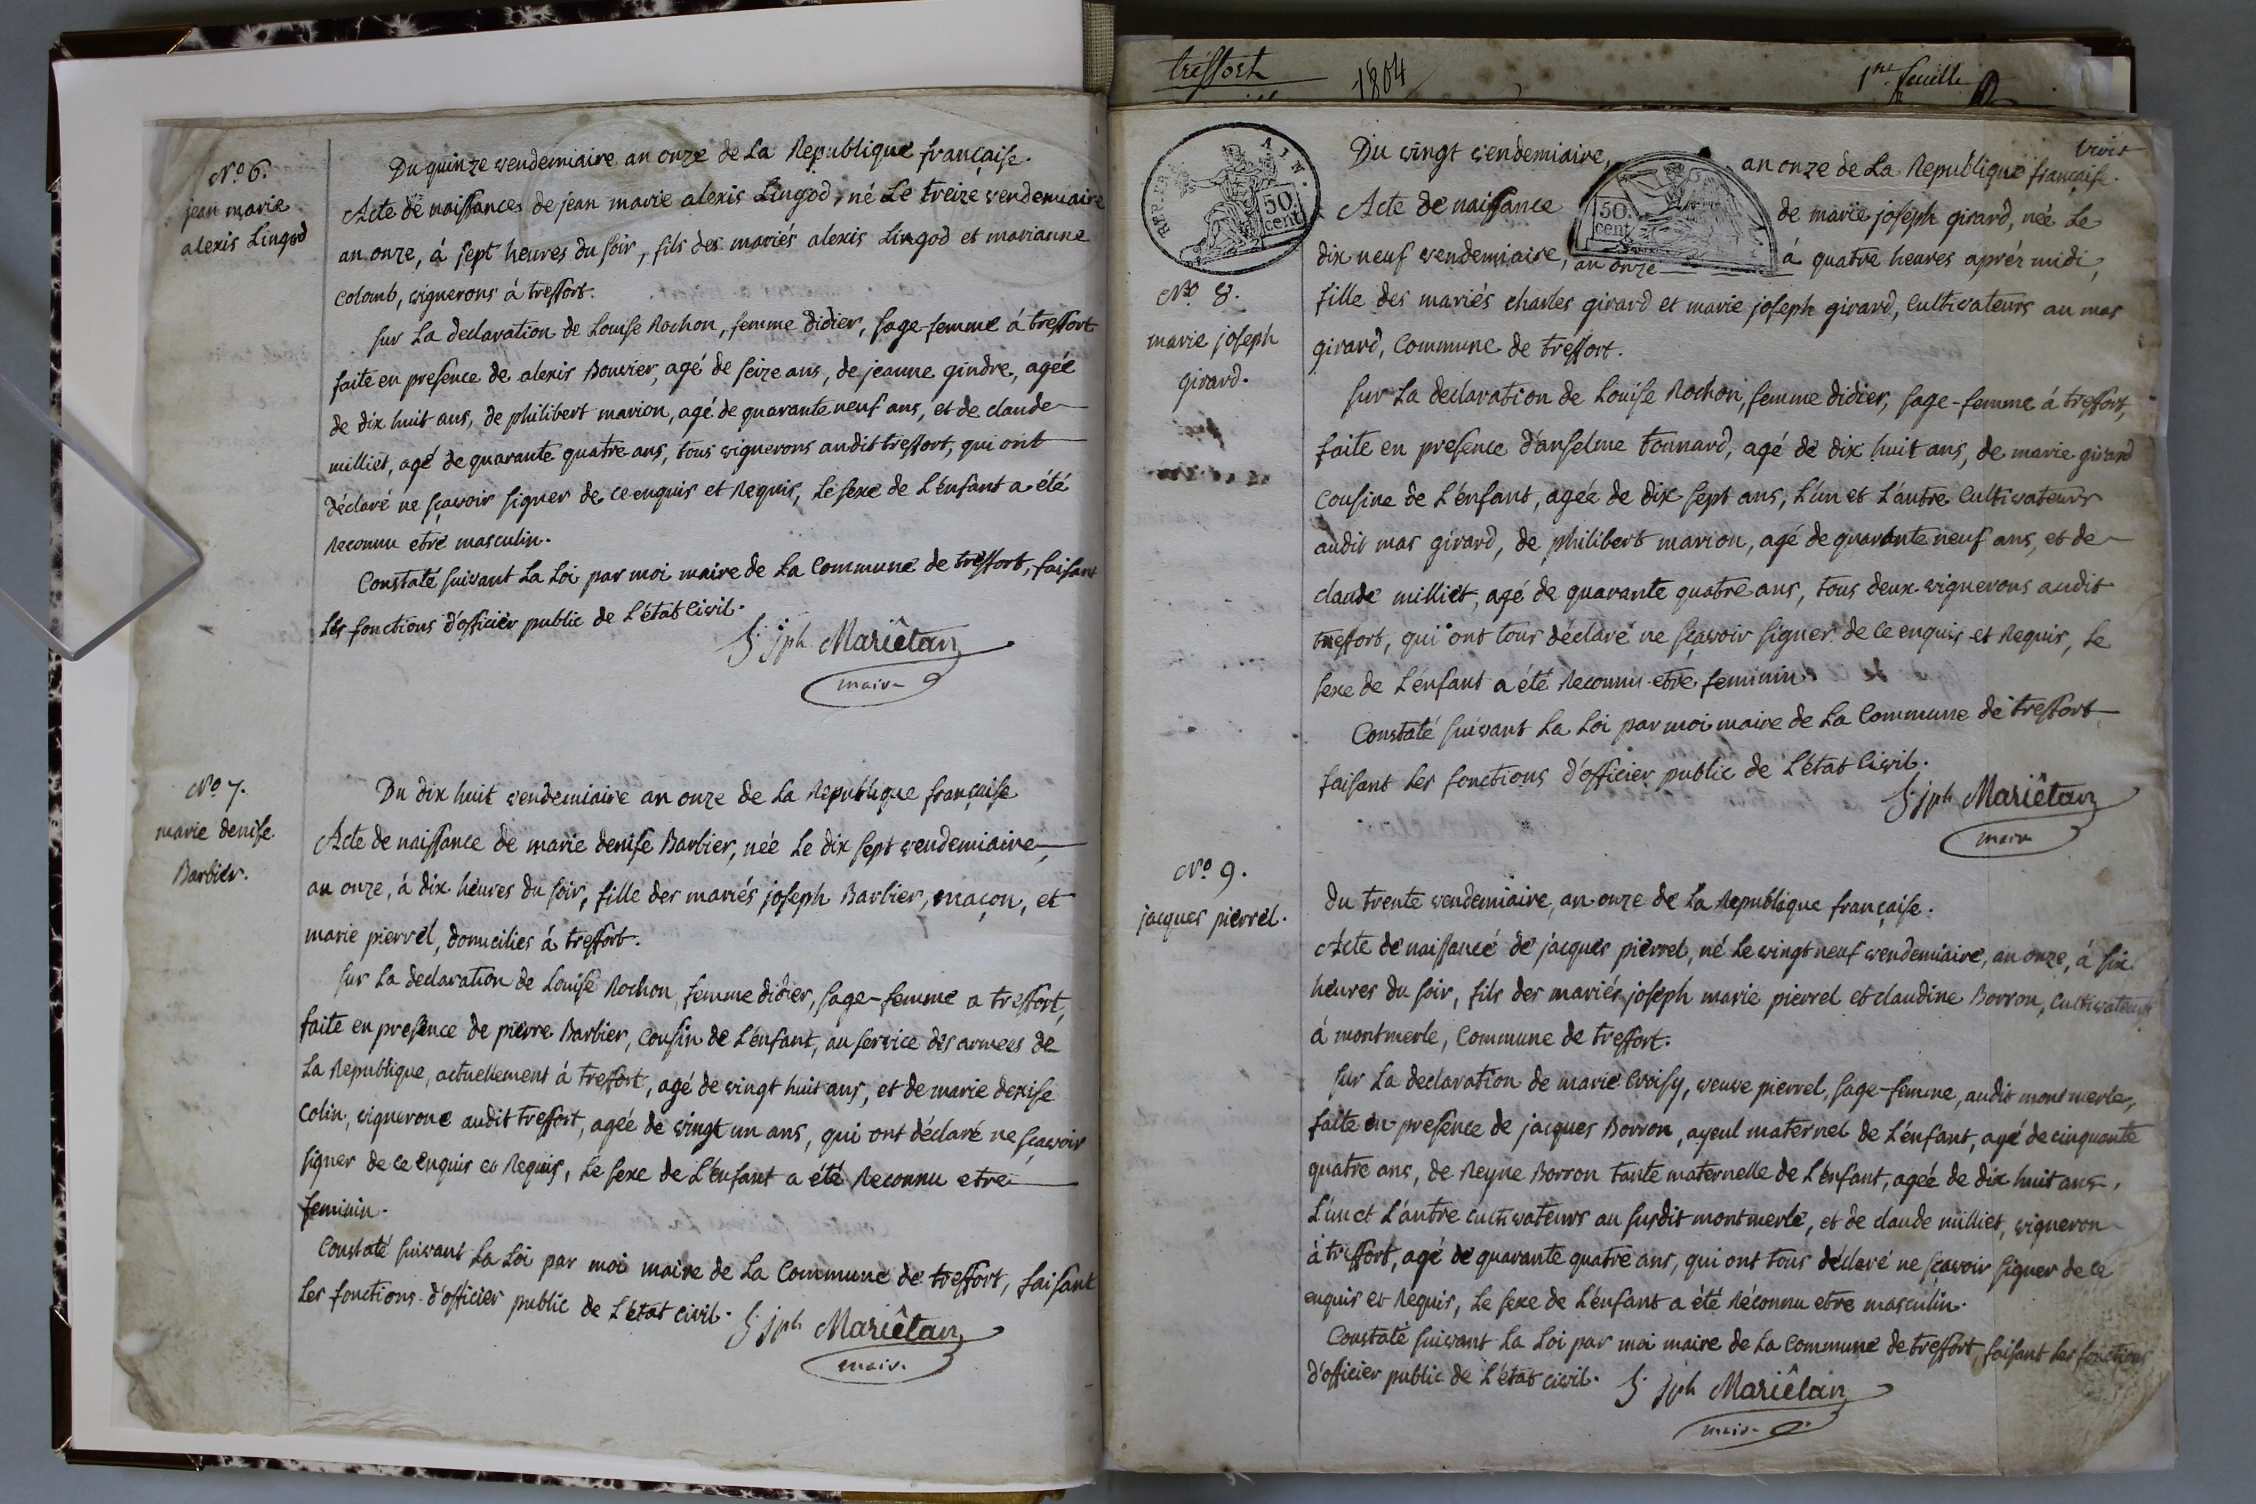 N.º 6.
jean marie
alexis Lingod
Du quinze vendemiaire an onze de La Republique française.
Acte de naissances de jean marie alexis Lingod, né Le treize vendemiaire
an onze, á sept heures du soir, fils des mariés alexis Lingod et marianne
Colomb, vignerons á treffort.
sur La declaration de Louise Rochon, femme didier, sage-femme á treffort
faite en presence de alexis Bouvier, agé de seize ans, de jeanne gindre, agée
de dix huit ans, de philibert marion, agé de quarante neuf ans, et de claude
milliet, agé de quarante quatre ans, tous vignerons audit treffort, qui ont
déclaré ne sçavoir signer de ce enquis et Requis, Le sexe de L'énfant a été
Reconnu etre masculin.
Constaté suivant La Loi par moi maire de La Commune de treffort, faisant
Les fonctions d'officier public de L'état Civil.
jph Mariêtan
maire
N.º 7.
marie denise
Barbier.
Du dix huit vendemiaire an onze de La Republique française
Acte de naissance de marie denise Barbier, née Le dix sept vendemiaire
an onze, á dix heures du soir, fille des mariés joseph Barbier, maçon, et
marie pierrel, domicilies á treffort.
sur La declaration de Louise Rochon, femme didier, sage-femme a treffort,
faite en presence de pierre Barbier, Cousin de L'énfant, au service des armees de
La Republique, actuellement á treffort, agé de vingt huit ans, et de marie denise
Colin, vignerone audit treffort, agée de vingt un ans, qui ont déclaré ne sçavoir
signer de ce enquis et Requis, Le sexe de L'énfant a été Reconnu etre
feminin.
Constaté suivant La Loi par moi maire de La Commune de treffort, faisant
Les fonctions d'officier public de L'état civil.
jph Mariêtan
maire
tréffort 1804 1re feuille
REP. FRA. AIN.
50. cent
50. cent
N.º 8.
marie joseph
girard.
Du vingt vendemiaire, an onze de La Republique française.
Acte de naissance de marie joseph girard, née Le
dix neuf vendemiaire, an onze á quatre heures aprés midi,
fille des mariés charles girard et marie joseph girard, Cultivateurs au mas
girard, Commune de treffort.
sur La declaration de Louise Rochon, femme didier, sage-femme á treffort,
faite en presence d'anselme tonnard, agé de dix huit ans, de marie girard
Cousine de L'énfant, agée de dix sept ans, L'un et L'autre Cultivateurs
audit mas girard, de philibert marion, agé de quarante neuf ans, et de
claude milliet, agé de quarante quatre ans, tous deux vignerons audit
treffort, qui ont tous déclaré ne sçavoir signer de ce enquis et Requis, Le
sexe de L'énfant a été Reconnu etre feminin.
Constaté suivant La Loi par moi maire de La Commune de treffort
faisant Les fonctions d'officier public de L'état Civil.
jph Mariêtan
maire
N.º 9.
jacques pierrel.
Du trente vendemiaire, an onze de La Republique française.
Acte de naissance de jacques pierrel, né Le vingt neuf vendemiaire, an onze, á six
heures du soir, fils des mariés joseph marie pierrel et claudine Borron, Cultivateurs
á montmerle, Commune de treffort.
sur La declaration de marie Croisy, veuve pierrel, sage-femme, audit montmerle,
faite en presence de jacques Borron, ayeul maternel de L'énfant, agé de cinquante
quatre ans, de Reyne Borron tante maternelle de L'énfant, agée de dix huit ans,
L'un et L'autre cultivateurs au susdit montmerle, et de claude milliet, vigneron
á treffort, agé de quarante quatre ans, qui ont tous déclaré ne sçavoir signer de ce
enquis et Requis, Le sexe de L'énfant a été Réconnu etre masculin.
Constaté suivant La Loi par moi maire de La Commune de treffort, faisant Les fonctions
d'officier public de L'état civil.
jph Mariêtan
maire